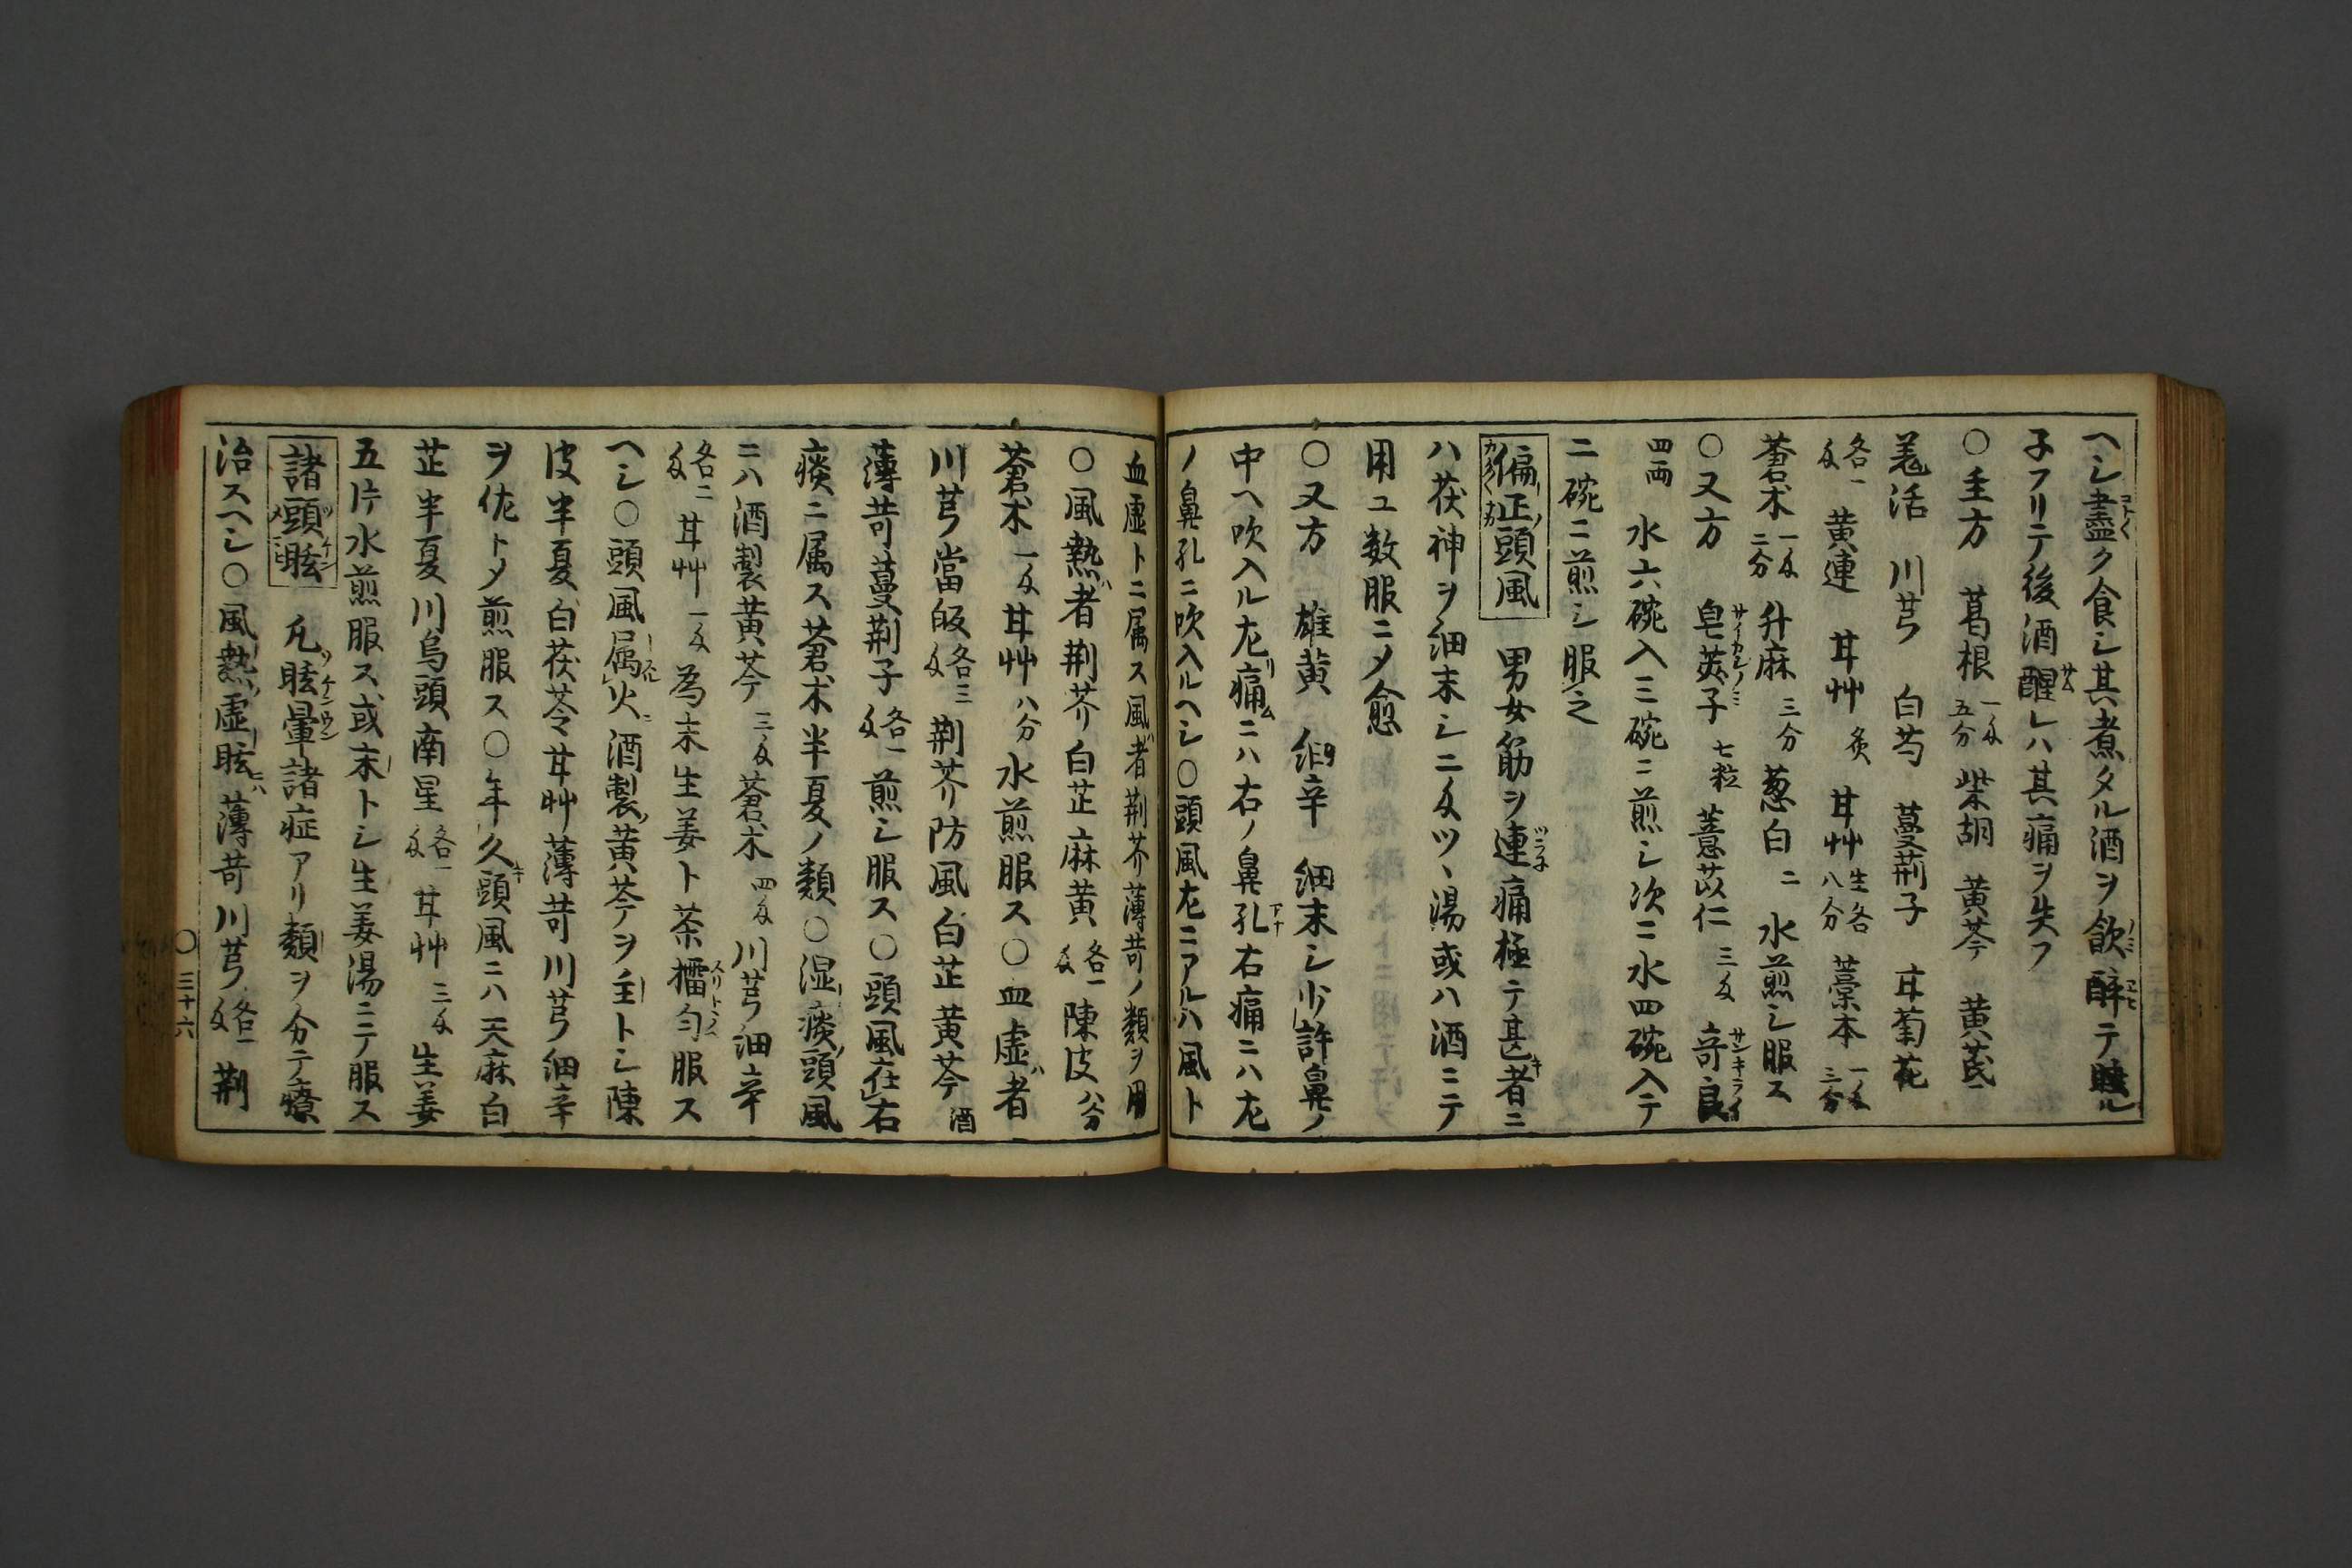 ヘシ盡ク食シ其煮タル酒ヲ飲醉テ睡ル
子フリテ後酒醒レハ其痛ヲ失フ
〇主方 葛根一匁五分 柴胡 黄芩 黄芪
羗活 川芎 白芍 蔓荊子 甘菊花
各一匁 黄連 甘艸炙 甘艸生各八分 藁本一匁三分
蒼朮一匁二分 升麻三分 葱白二 水煎シ服ス
〇又方 皂莢子七粒 薏苡仁三匁 竒良
四両 水六碗入三碗ニ煎シ次ニ水四碗入テ
二碗ニ煎シ服之
偏正頭風 男女筋ヲ連痛極テ甚者ニ
ハ茯神ヲ細末シ二匁ツヽ湯或ハ酒ニテ
用ユ数服ニメ愈
〇又方 雄黄 細辛 細末シ少許鼻ノ
中ヘ吹入ル左痛ニハ右ノ鼻孔右痛ニハ左
ノ鼻孔ニ吹入ルヘシ〇頭風左ニアルハ風ト
血虚トニ属ス風者荆芥薄荷ノ類ヲ用
〇風熱者荆芥白芷麻黄各一匁陳皮八分
蒼朮一匁甘艸八分水煎服ス〇血虚者
川芎當皈各三匁荆芥防風白芷黄芩酒
薄荷蔓荆子各一匁煎シ服ス〇頭風在右
痰ニ属ス蒼朮半夏ノ類〇湿痰頭風
ニハ酒製黄芩三匁蒼朮四匁川芎細辛
各二匁甘艸一匁為末生姜ト茶擂匀服ス
ヘシ〇頭風属火酒製黄芩ヲ主トシ陳
皮半夏白茯苓甘艸薄荷川芎細辛
ヲ佐トメ煎服ス〇年久頭風ニハ天麻白
芷半夏川烏頭南星各一匁甘艸三匁生姜
五片水煎服ス或末トシ生姜湯ニテ服ス
諸頭眩 凢眩暈諸症アリ類ヲ分テ療
治スヘシ〇風熱虚眩薄荷川芎各一匁荆
〇三十六